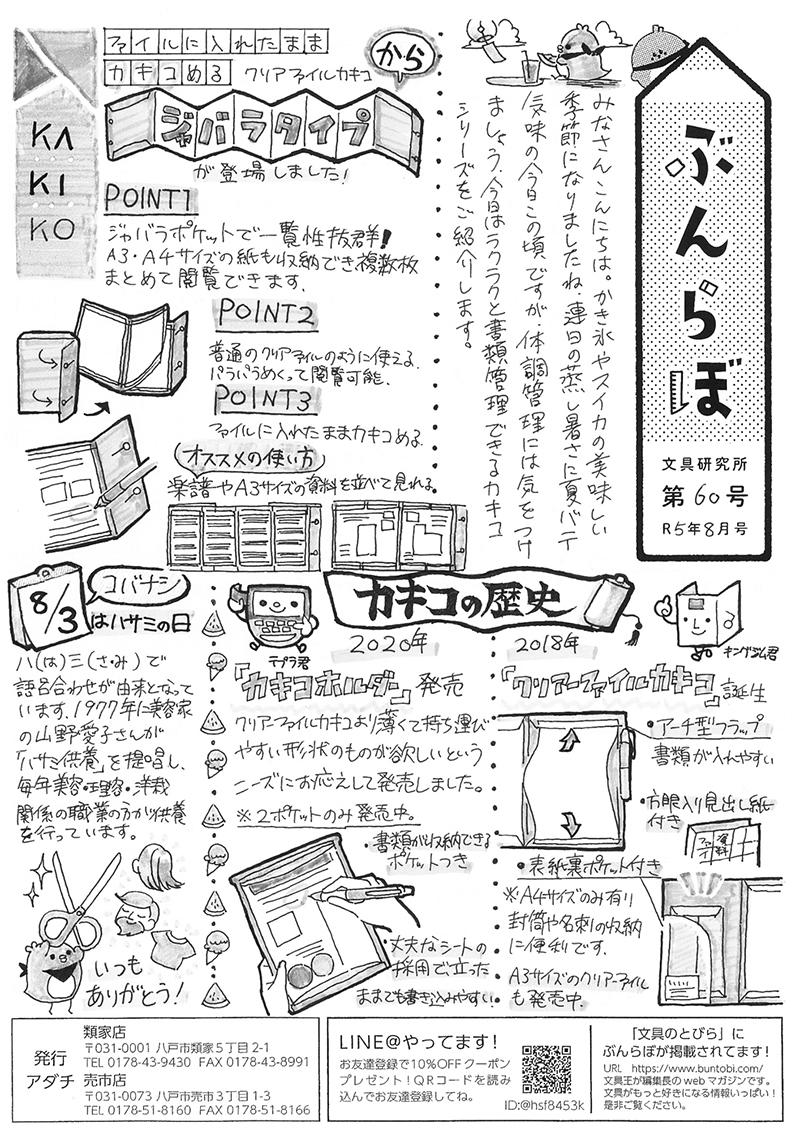 ぶんらぼ
文具研究所
第60号
R5年8月号
みなさんこんにちは。かき氷やスイカの美味しい
季節になりましたね。連日の蒸し暑さに夏バテ
気味の今日この頃ですが、体調管理には気をつけ
ましょう。今日はラクラクと書類管理できるカキコ
シリーズをご紹介します。
KA
KI
KO
ファイルに入れたまま
カキコめる クリアーファイルカキコ
から
ジャバラタイプ
が登場しました!
POINT1
ジャバラポケットで一覧性抜群!
A3・A4サイズの紙も収納でき複数枚
まとめて閲覧できます。
POINT2
普通のクリアーファイルのように使える。
パラパラめくって閲覧可能。
POINT3
ファイルに入れたままカキコめる。
オススメの使い方
楽譜やA3サイズの資料を並べて見れる。
カキコの歴史
キングジム君
2018年
「クリアーファイルカキコ」誕生
・アーチ型フラップ
書類が入れやすい
・方眼入り見出し紙
付き
資料
・表紙裏ポケット付き
※A4サイズのみ有り
封筒や名刺の収納
に便利です。
A3サイズのクリアーファイル
も発売中。
テプラ君
2020年
「カキコホルダー」発売
クリアーファイルカキコより薄くて持ち運び
やすい形状のものが欲しいという
ニーズにお応えして発売しました。
※2ポケットのみ発売中。
・書類が収納できる
ポケットつき
・丈夫なシートの
採用で立った
ままでも書き込みやすい。
8/3
コバナシ
はハサミの日
八(は)三(さ・み)で
語呂合わせが由来となって
います。1977年に美容家
の山野愛子さんが
「ハサミ供養」を提唱し、
毎年美容・理容・洋裁
関係の職業の方が供養
を行っています。
いつも
ありがとう!
発行
アダチ
類家店
〒031-0001 八戸市類家5丁目2-1
TEL 0178-43-9430 FAX 0178-43-8991
売市店
〒031-0073 八戸市売市3丁目1-3
TEL 0178-51-8160 FAX 0178-51-8166
LINE@やってます!
お友達登録で10%OFFクーポン
プレゼント!QRコードを読み
込んでお友達登録してね。
ID:@hsf8453k
「文具のとびら」に
ぶんらぼが掲載されてます!
URL https://www.buntobi.com/
文具王が編集長のwebマガジンです。
文具がもっと好きになる情報いっぱい!
是非ご覧ください。